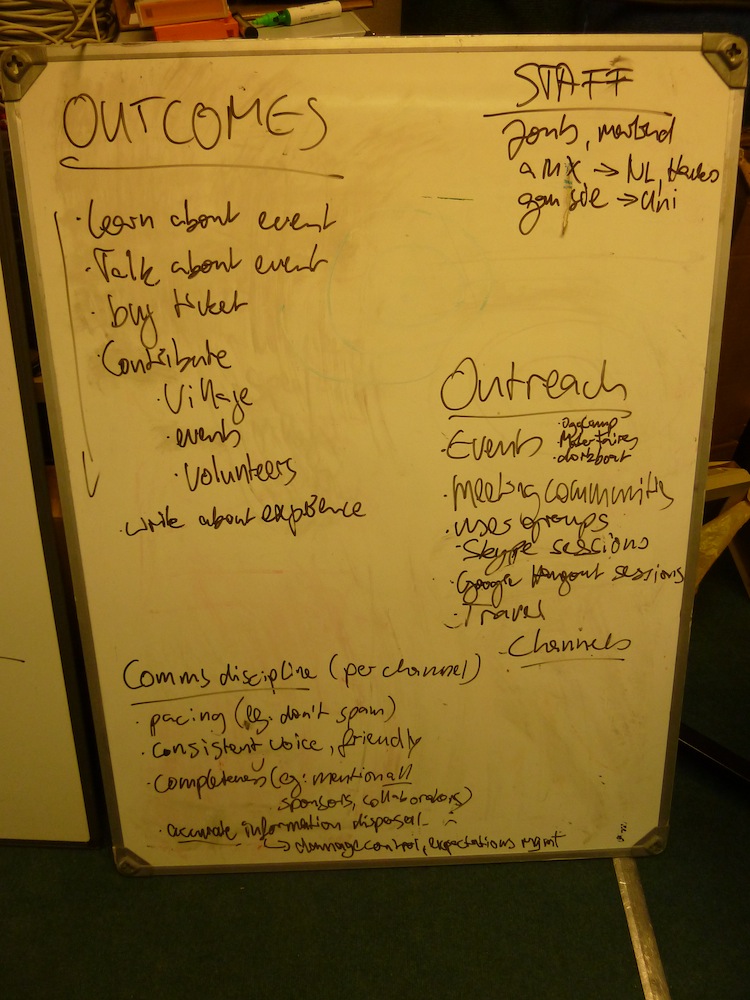 OUTCOMES
· Learn about event
· Talk about event
· buy ticket
· Contribute
· Village
· events
· Volunteers
· write about experience
STAFF
aMX → NL,
→ Uni
Outreach
· Events
· OggCamp
· Maker faires
· dorkboat
· Meeting communities
· user groups
· Skype sessions
· Google Hangout sessions
· Travel
· Channels
Comms discipline (per channel)
· pacing (eg. don't spam)
· consistent voice, friendly
· completeness (eg: mention all
sponsors, collaborators)
· accurate information dispersal
↳ damage control, expectations mgmt